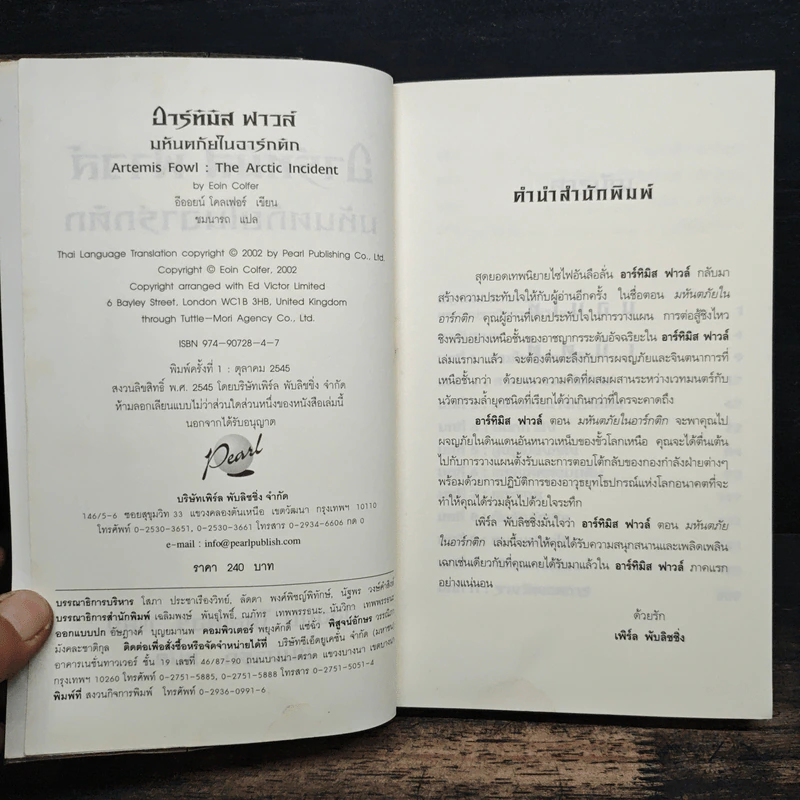 อาร์ทิมิส ฟาวล์
มหันตภัยในอาร์กติก
Artemis Fowl : The Arctic Incident
by Eoin Colfer
อีออยน์ โคลเฟอร์ เขียน
ชมนารถ แปล
Thai Language Translation copyright © 2002 by Pearl Publishing Co., Ltd.
Copyright © Eoin Colfer, 2002
Copyright arranged with Ed Victor Limited
6 Bayley Street, London WC1B 3HB, United Kingdom
through Tuttle-Mori Agency Co., Ltd.
ISBN 974-90728-4-7
พิมพ์ครั้งที่ 1 : ตุลาคม 2545
สงวนลิขสิทธิ์ พ.ศ. 2545 โดยบริษัทเพิร์ล พับลิชชิ่ง จำกัด
ห้ามลอกเลียนแบบไม่ว่าส่วนใดส่วนหนึ่งของหนังสือเล่มนี้
นอกจากได้รับอนุญาต
Pearl
บริษัทเพิร์ล พับลิชชิ่ง จำกัด
146/5-6 ซอยสุขุมวิท 33 แขวงคลองตันเหนือ เขตวัฒนา กรุงเทพฯ 10110
โทรศัพท์ 0-2530-3651, 0-2530-3661 โทรสาร 0-2934-6606 กด 0
e-mail : info@pearlpublish.com
ราคา 240 บาท
บรรณาธิการบริหาร โสภา ประชาเรืองวิทย์, ลัดดา พงศ์พิชญ์พิทักษ์, นัฐพร
บรรณาธิการสำนักพิมพ์ เฉลิมพงษ์ พันธุ์โพธิ์, ณภัทร เทพพรรธนะ, นันวิกา เทพพรรธนะ
ออกแบบปก อัษฎางค์ บุญยมานพ คอมพิวเตอร์ พยุงศักดิ์ แซ่ฉั่ว พิสูจน์อักษร
มังคละชาติกุล ติดต่อเพื่อสั่งซื้อหรือจัดจำหน่ายได้ที่ บริษัทซีเอ็ดยูเคชั่น จำกัด (มหาชน)
อาคารเนชั่นทาวเวอร์ ชั้น 19 เลขที่ 46/87-90 ถนนบางนา-ตราด แขวงบางนา เขตบางนา
กรุงเทพฯ 10260 โทรศัพท์ 0-2751-5885, 0-2751-5888 โทรสาร 0-2751-5051-4
พิมพ์ที่ สงวนกิจการพิมพ์ โทรศัพท์ 0-2936-0991-6
คำนำสำนักพิมพ์
สุดยอดเทพนิยายไซไฟอันลือลั่น อาร์ทิมิส ฟาวล์ กลับมา
สร้างความประทับใจให้กับผู้อ่านอีกครั้ง ในชื่อตอน มหันตภัยใน
อาร์กติก คุณผู้อ่านที่เคยประทับใจในการวางแผน การต่อสู้ชิงไหว
ชิงพริบอย่างเหนือชั้นของอาชญากรระดับอัจฉริยะใน อาร์ทิมิส ฟาวล์
เล่มแรกมาแล้ว จะต้องตื่นตะลึงกับการผจญภัยและจินตนาการที่
เหนือชั้นกว่า ด้วยแนวความคิดที่ผสมผสานระหว่างเวทมนตร์กับ
นวัตกรรมล้ำยุคชนิดที่เรียกได้ว่าเกินกว่าที่ใครจะคาดถึง
อาร์ทิมิส ฟาวล์ ตอน มหันตภัยในอาร์กติก จะพาคุณไป
ผจญภัยในดินแดนอันหนาวเหน็บของขั้วโลกเหนือ คุณจะได้ตื่นเต้น
ไปกับการวางแผนตั้งรับและการตอบโต้กลับของกองกำลังฝ่ายต่างๆ
พร้อมด้วยการปฏิบัติการของอาวุธยุทโธปกรณ์แห่งโลกอนาคตที่จะ
ทำให้คุณได้ร่วมลุ้นไปด้วยใจระทึก
เพิร์ล พับลิชชิ่งมั่นใจว่า อาร์ทิมิส ฟาวล์ ตอน มหันตภัย
ในอาร์กติก เล่มนี้จะทำให้คุณได้รับความสนุกสนานและเพลิดเพลิน
เฉกเช่นเดียวกับที่คุณเคยได้รับมาแล้วใน อาร์ทิมิส ฟาวล์ ภาคแรก
อย่างแน่นอน
ด้วยรัก
เพิร์ล พับลิชชิ่ง